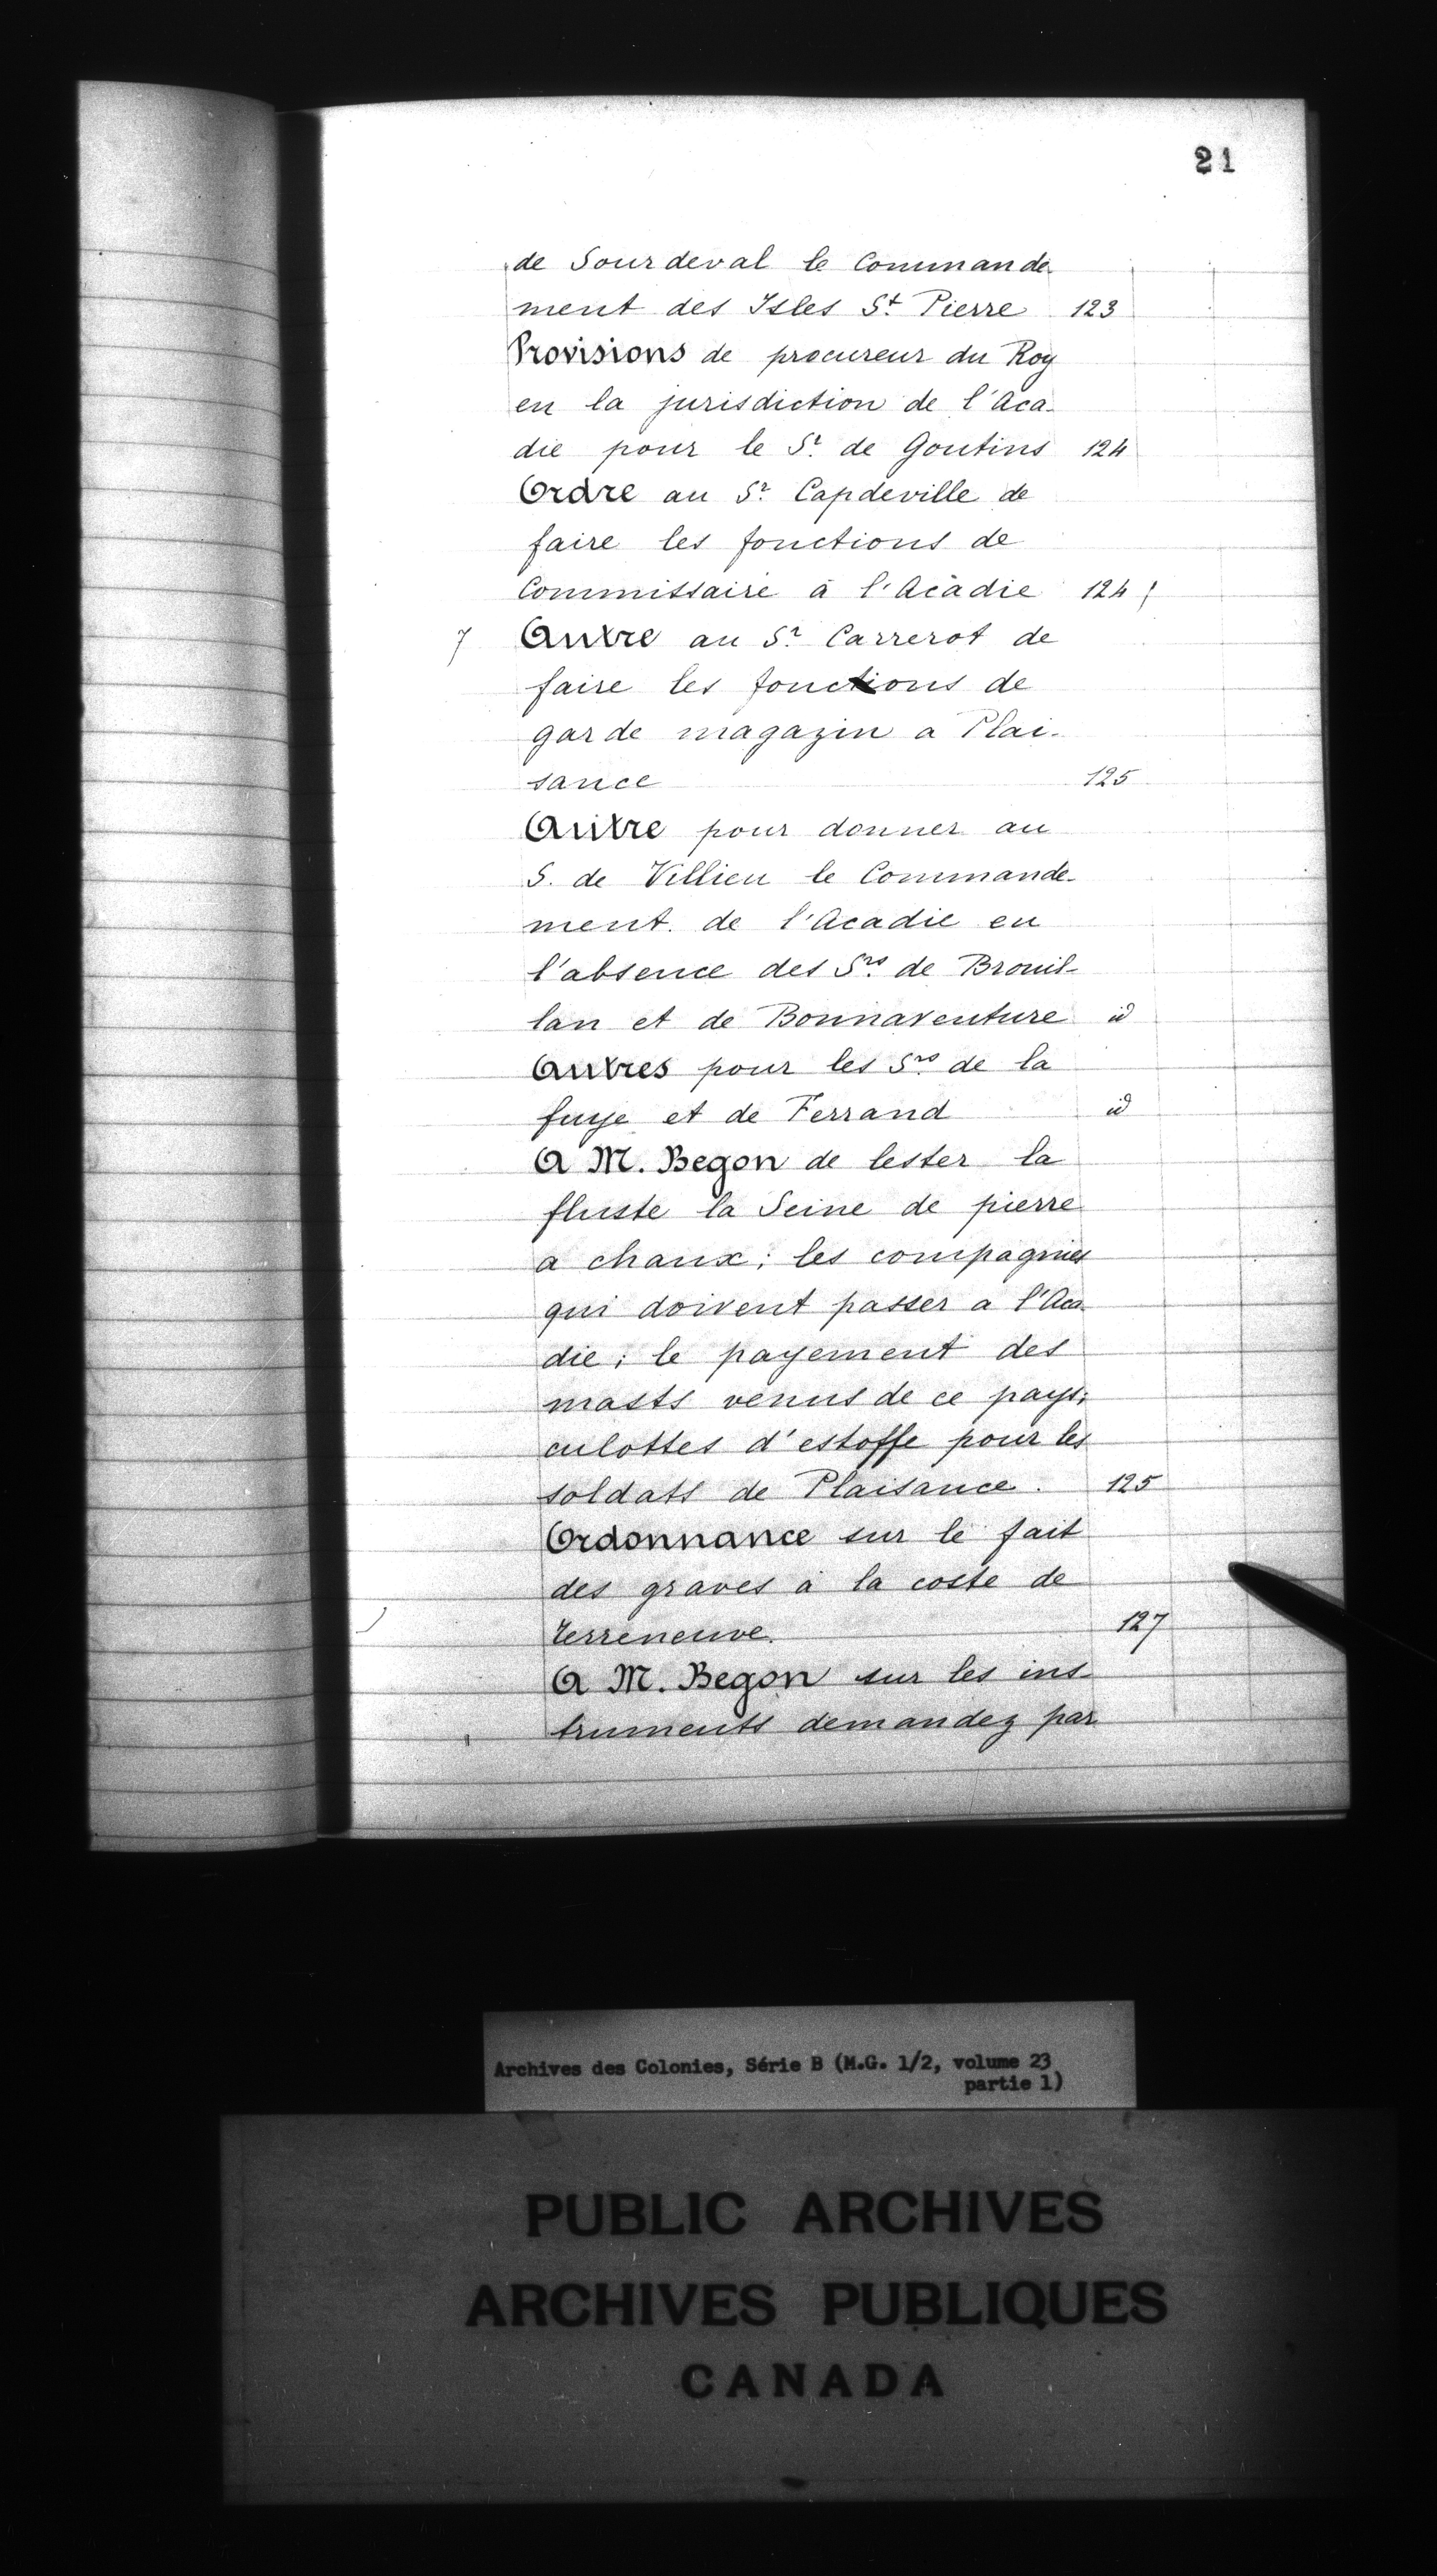 21
de Sourdeval le Commande-
ment des Isles St Pierre 123
Provisions de procureur du Roy
en la jurisdiction de l'Aca-
die pour le Sr. de Goutins 124
Ordre au Sr. Capdeville de
faire les fonctions de
Commissaire à l'Acadie 124
7 Autre au Sr. Carrerot de
faire les fonctions de
garde magazin a Plai-
sance 125
Autre pour donner au
S. de Villieu le Commande-
ment. de l'Acadie en
l'absence des Srs. de Brouil-
lan et de Bonnaventure id
Autres pour les Srs. de la
fuye et de Ferrand id
A M. Begon de lester la
fluste la Seine de pierre
a chaux; les compagnies
qui doivent passer a l'Aca-
die; le payement des
masts venus de ce pays;
culottes d'estoffe pour les
soldats de Plaisance. 125
Ordonnance sur le fait
des graves à la coste de
Terreneuve. 127
A M. Begon sur les ins-
truments demandez par
Archives des Colonies, Série B (M.G. 1/2, volume 23
partie 1)
PUBLIC ARCHIVES
ARCHIVES PUBLIQUES
CANADA